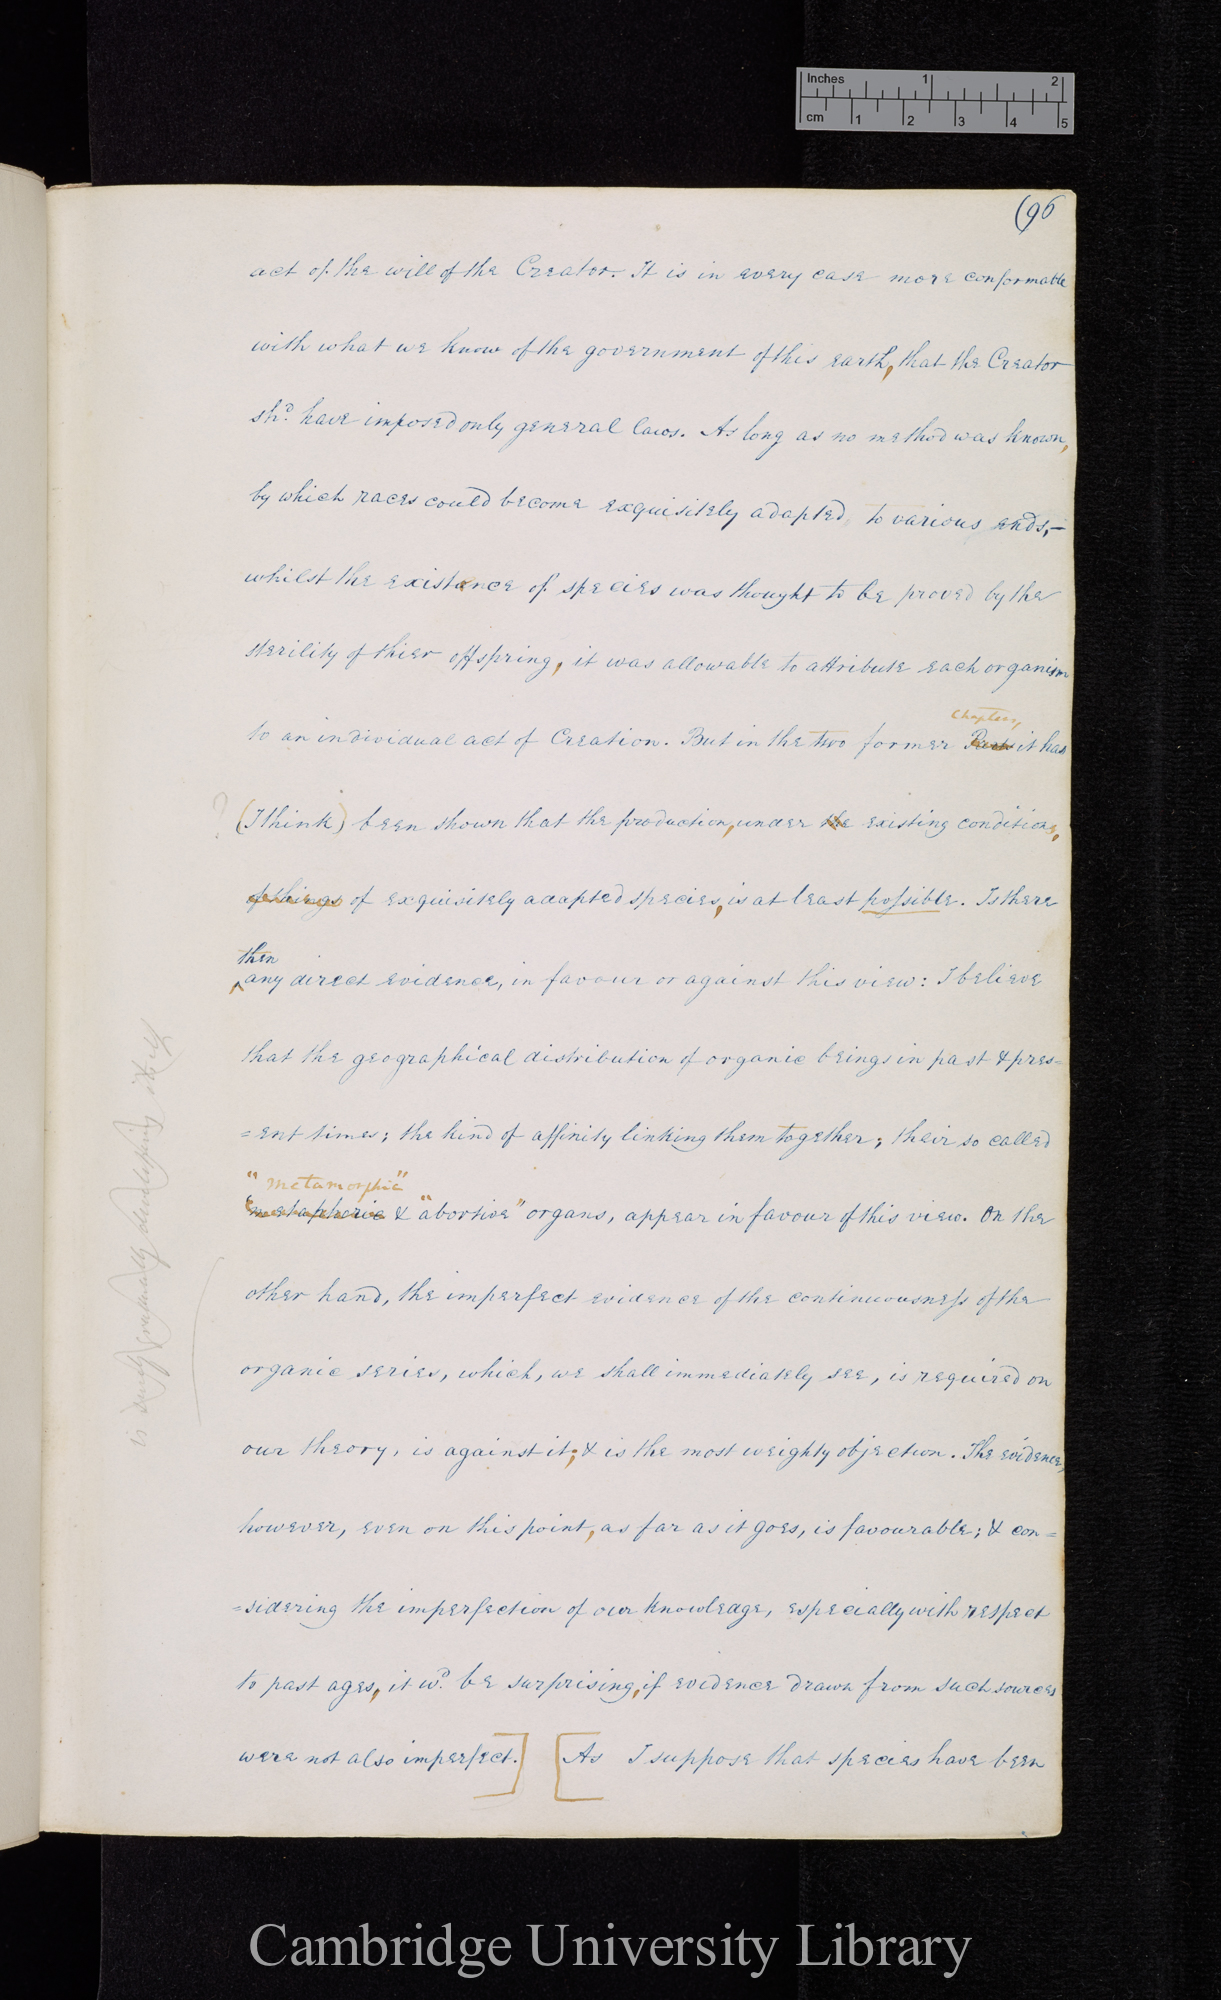 Inches 1 2
cm 1 2 3 4 5
(96
act of the will of the Creator. It is in every case more conformable
with what we know of the government of this earth, that the Creator
shd. have imposed only general laws. As long as no method was known,
by which races could become exquisitely adapted to various ends,—
whilst the existence of species was thought to be proved by the
sterility of thier offspring, it was allowable to attribute each organism
Chapters,
to an individual act of Creation. But in the two former Parts it has
? (I think) been shown that the production, under the existing conditions,
of things of exquisitely adapted species, is at least possible. Is there
then
any direct evidence, in favour or against this view: I believe
that the geographical distribution of organic beings in past & pres=
=ent times; the kind of affinity linking them together; their so called
"metamorphic"
"metapheric & "abortive" organs, appear in favour of this view. On the
other hand, the imperfect evidence of the continuousness of the
organic series, which, we shall immediately see, is required on
our theory, is against it; & is the most weighty objection. The evidence,
however, even on this point, as far as it goes, is favourable; & con=
=sidering the imperfection of our knowledge, especially with respect
to past ages, it wd. be surprising, if evidence drawn from such sources
were not also imperfect.] [As I suppose that species have been
is gradually developing itself
Cambridge University Library